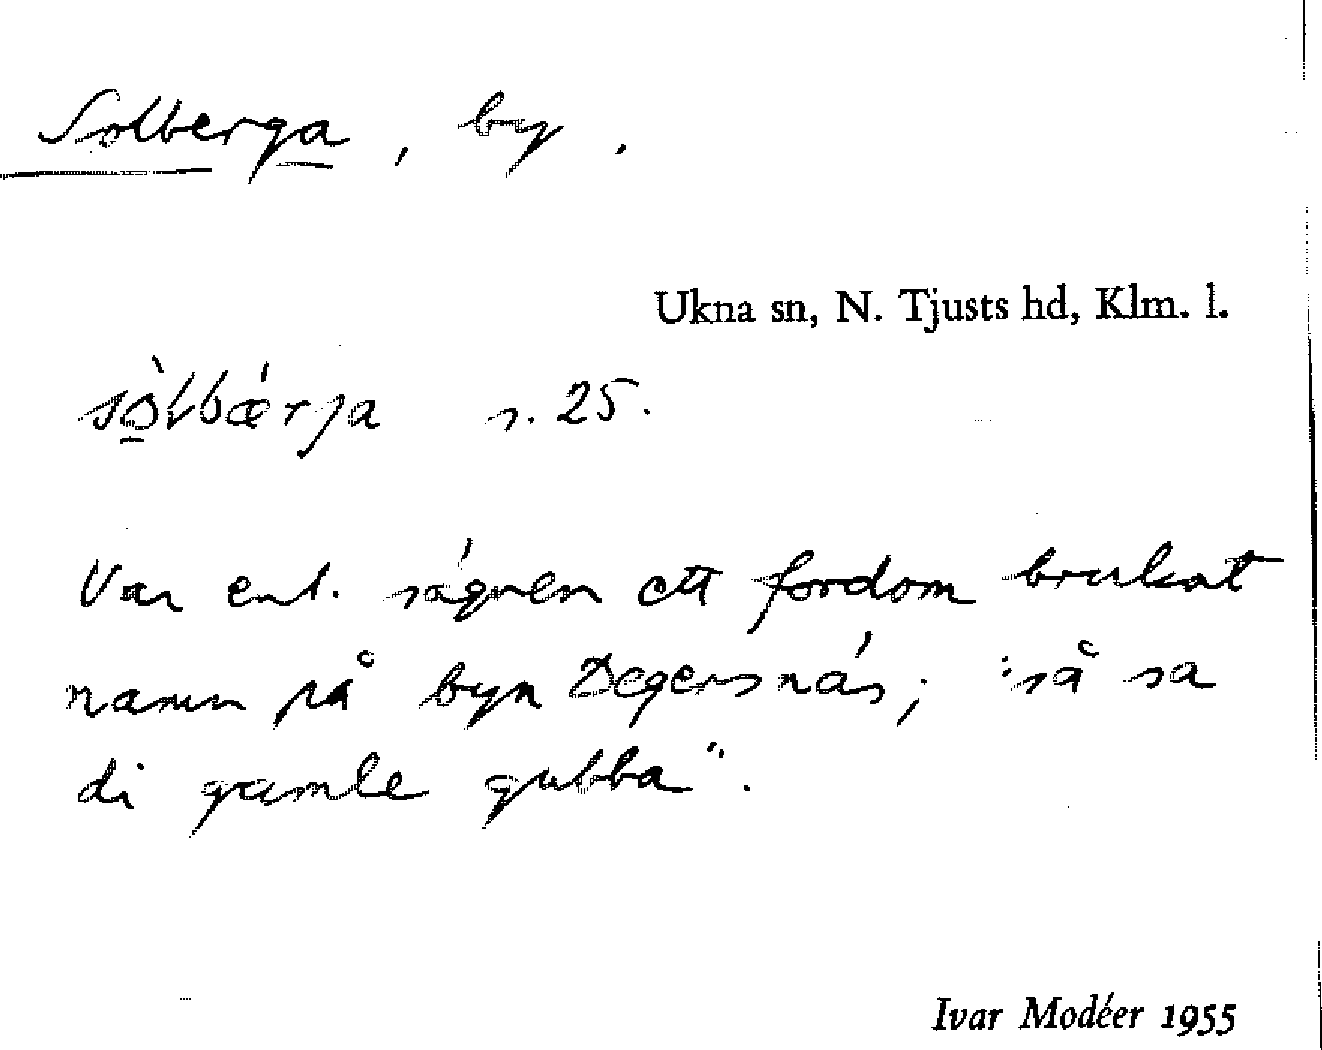 Solberga, by.
Ukna sn, N. Tjusts hd, Klm. l.
sò̱lbǽrja s. 25.
Var enl. sägnen ett fordom brukat
namn på byn Degersnäs; "så sa
di gamle gubba".
Ivar Modéer 1955